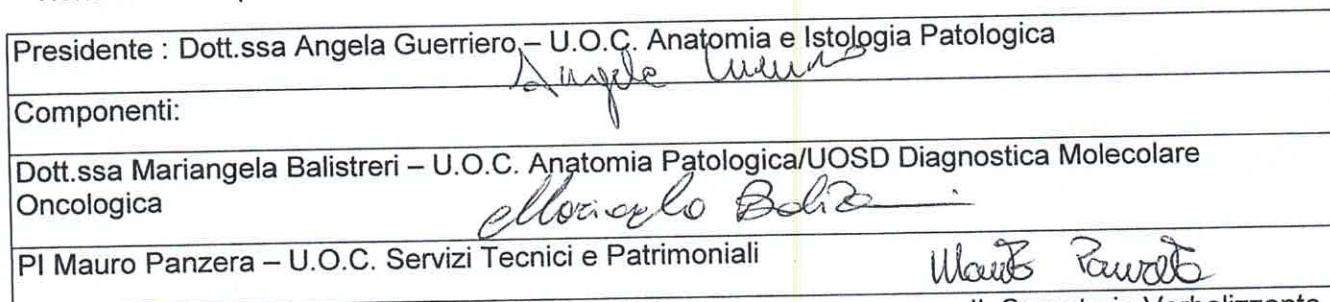 Presidente : Dott.ssa Angela Guerriero – U.O.C. Anatomia e Istologia Patologica
Angela
Componenti:
Dott.ssa Mariangela Balistreri – U.O.C. Anatomia Patologica/UOSD Diagnostica Molecolare
Oncologica
PI Mauro Panzera – U.O.C. Servizi Tecnici e Patrimoniali